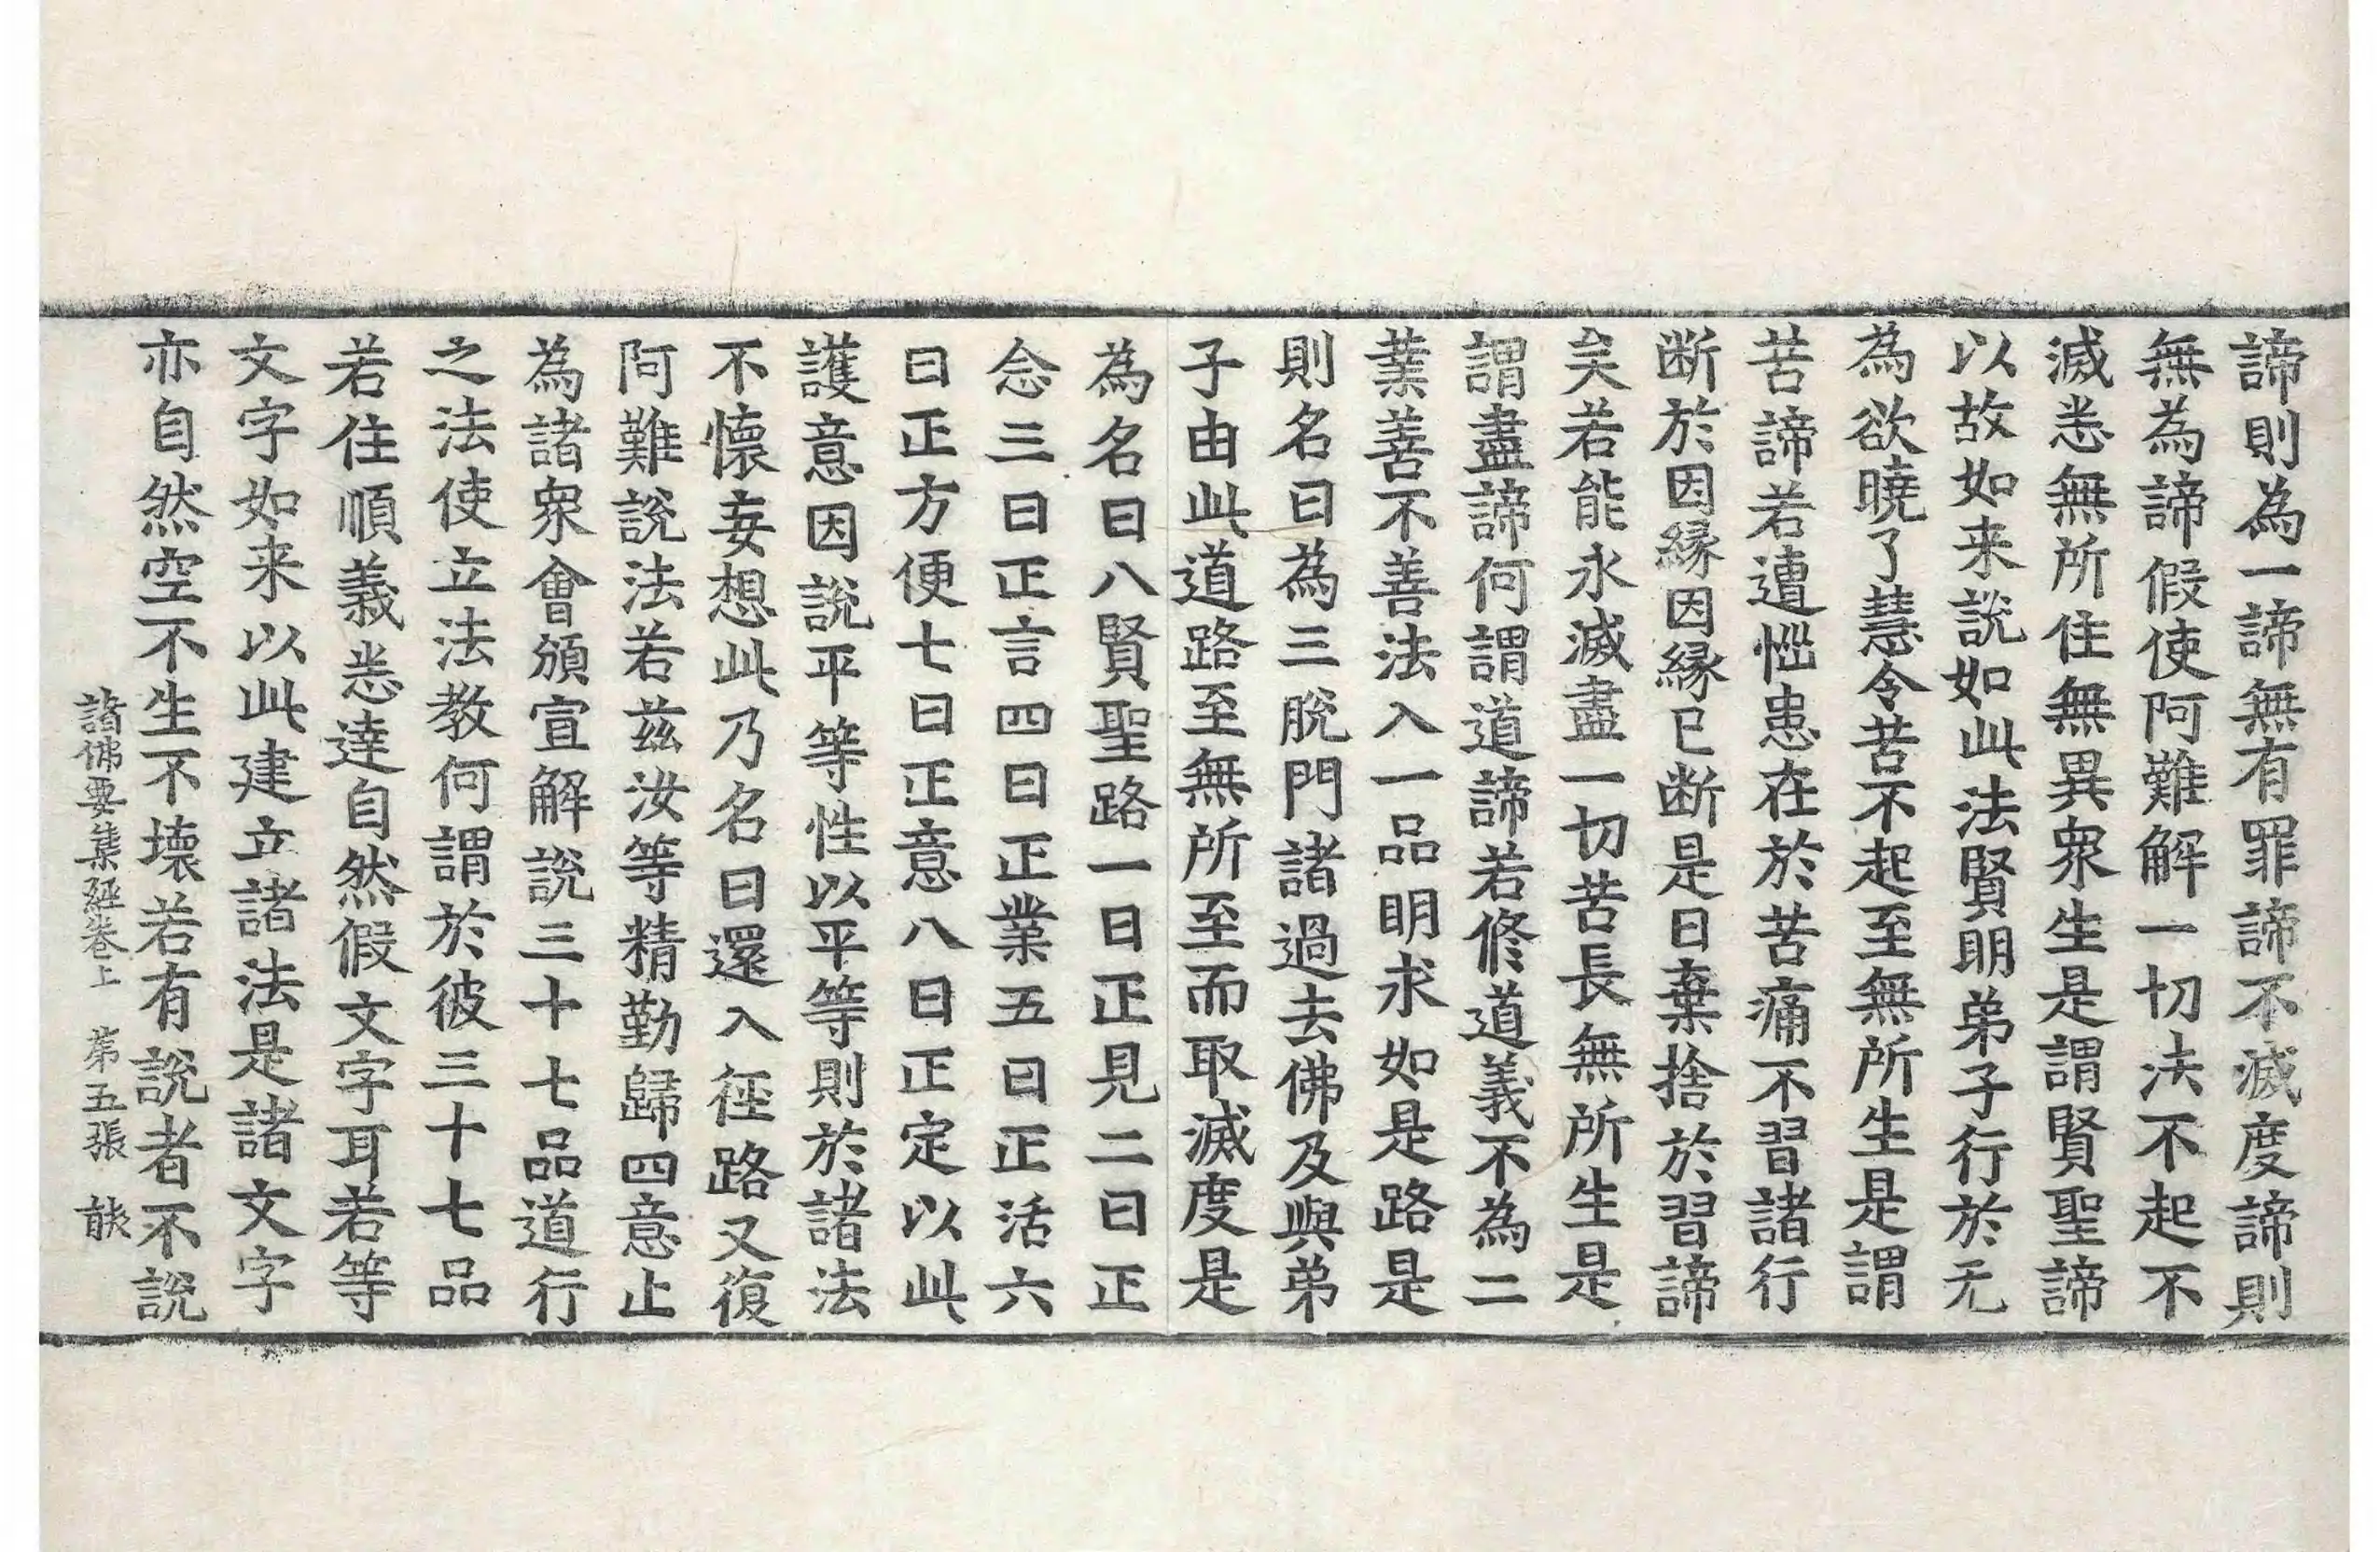 諦則為一諦無有罪諦不滅度諦則
無為諦假使阿難解一切法不起不
滅悉無所住無異衆生是謂賢聖諦
以故如来說如此法賢明弟子行於无
為欲曉了慧令苦不起至無所生是謂
苦諦若遭惱患在於苦痛不習諸行
断於因緣因緣已断是曰棄捨於習諦
矣若能永滅盡一切苦長無所生是
謂盡諦何謂道諦若修道義不為二
業善不善法入一品明求如是路是
則名曰為三脫門諸過去佛及與弟
子由此道路至無所至而取滅度是
為名曰八賢聖路一曰正見二曰正
念三曰正言四曰正業五曰正活六
曰正方便七曰正意八曰正定以此
護意因說平等性以平等則於諸法
不懷妄想此乃名曰還入徑路又復
阿難說法若茲汝等精勤歸四意止
為諸衆會頒宣解說三十七品道行
之法使立法教何謂於彼三十七品
若住順義悉達自然假文字耳若等
文字如来以此建立諸法是諸文字
亦自然空不生不壞若有說者不說
諸佛要集經卷上 第五張